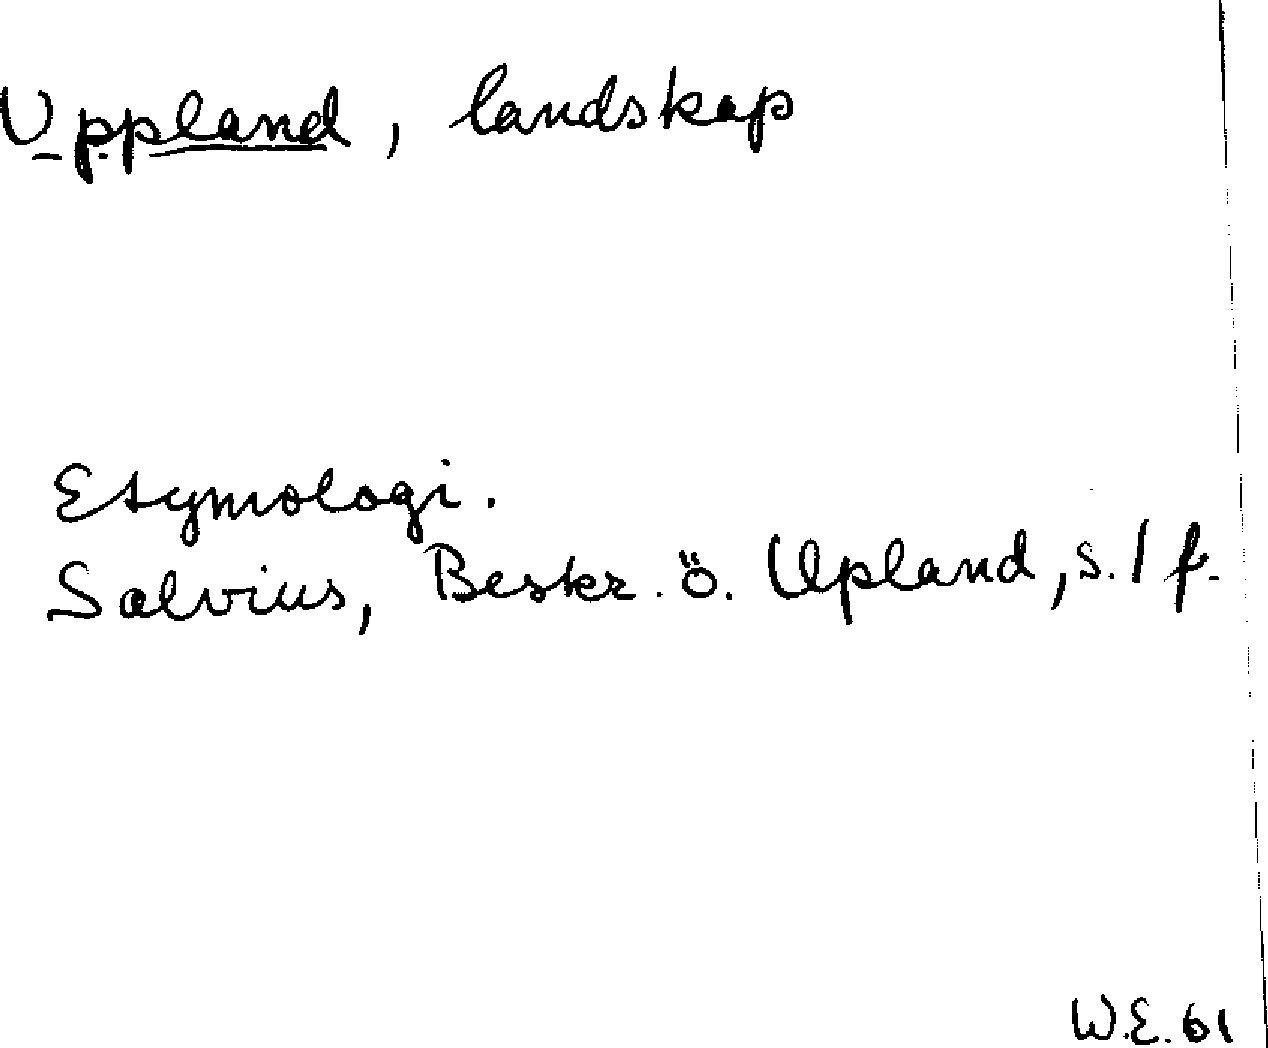 Uppland, landskap
Etymologi.
Salvius, Beskr. ö. Upland, s. 1 f.
W.E. 61